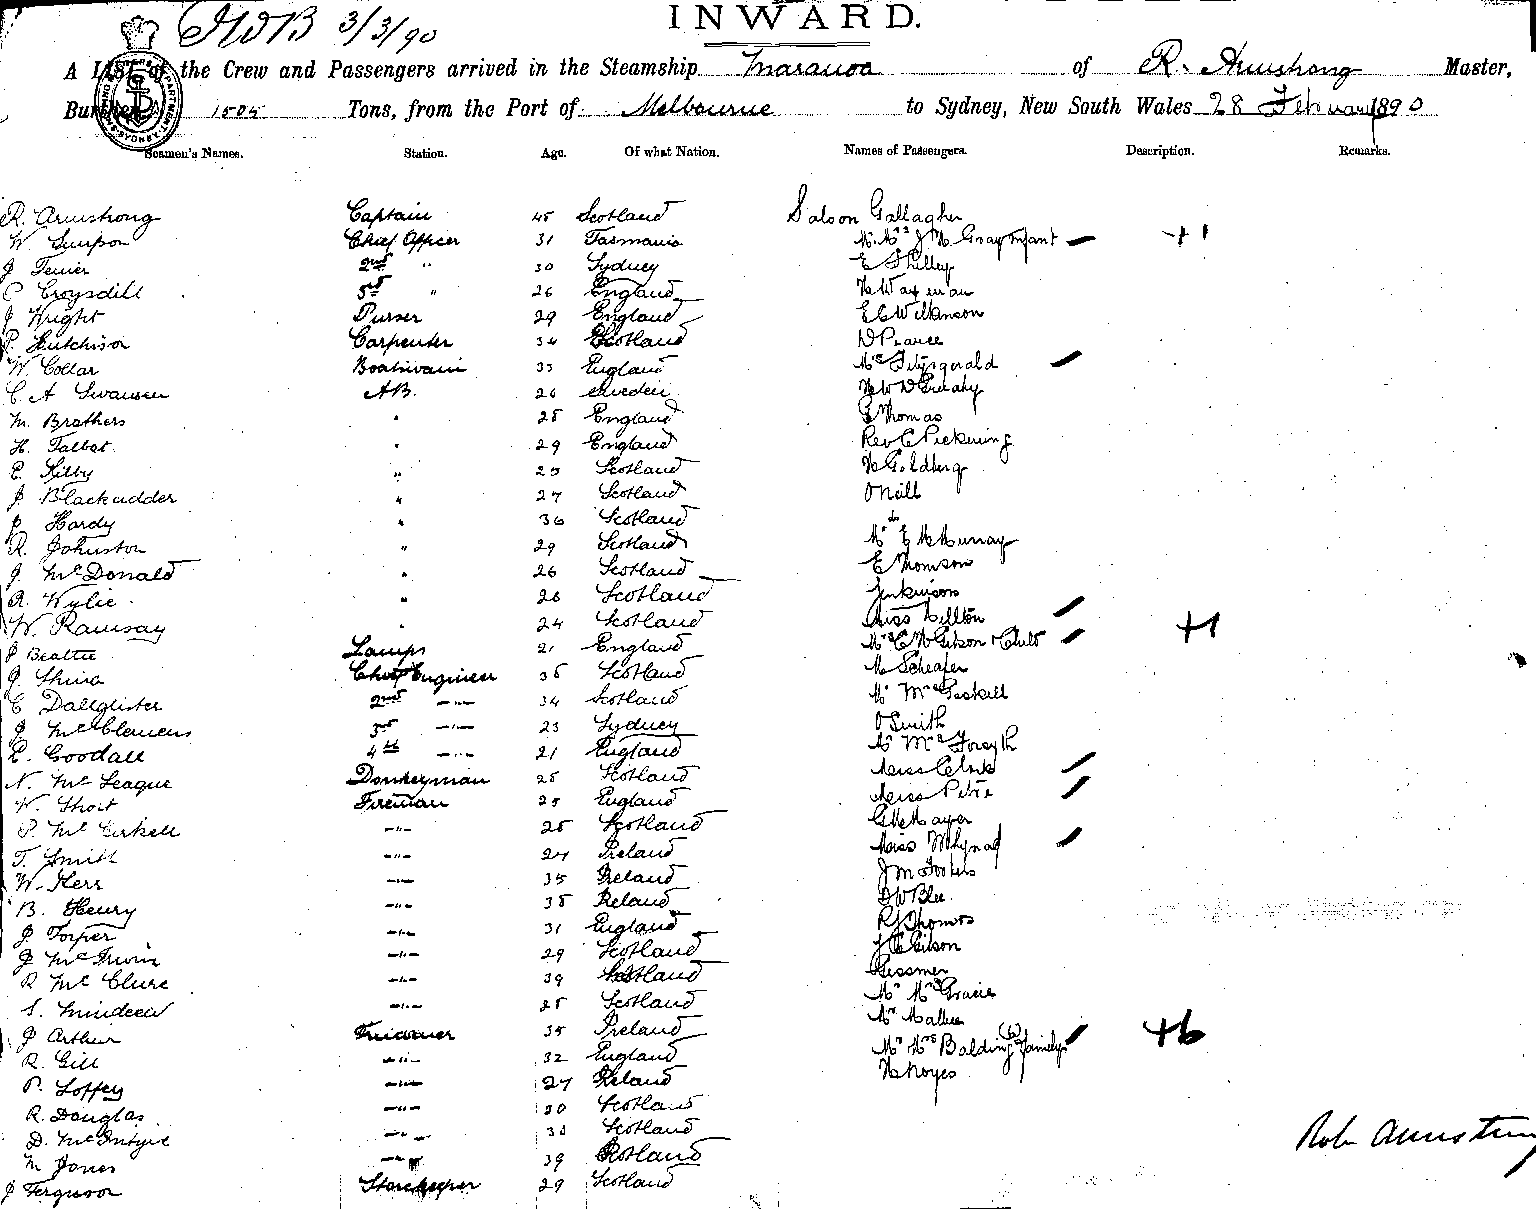 INWARD.
3/3/90
A LIST of the Crew and Passengers arrived in the Steamship Maranoa of R. Armstrong Master,
Burthen 1505 Tons, from the Port of Melbourne to Sydney, New South Wales 28 February 1890
Seamen's Names. Station. Age. Of what Nation. Names of Passengers. Description. Remarks.
R. Armstrong Captain 45 Scotland Saloon Gallagher
W Simpson Chief Officer 31 Tasmania Gray Infant +1
J 2nd " 30 Sydney E Shilley
C Croysdill 3rd " 26 England
J Wright Purser 29 England E C Wilkinson
P. Hutchison Carpenter 34 Scotland D Pearce
W Collar Boatswain 33 England Mrs Fitzgerald
C. A Swansen AB. 26 Sweden
M. Brothers " 25 England E Thomas
H. Talbot " 29 England Rev C Pickering
E. Kilby " 25 Scotland Goldberg
J Blackadder " 27 Scotland O'Neill
J Hardy " 36 Scotland
R. Johnston " 29 Scotland McMurray
J McDonald " 26 Scotland E Thomson
A. Wylie " 26 Scotland Jenkinson
W. Ramsay " 24 Scotland Miss
J Beattie Lamps 21 England Gibson & Child +1
J. Chief Engineer 35 Scotland Scheafer
C Dallglister 2nd " 34 Scotland
J McClemens 3rd " 23 Sydney Smith
E. Goodall 4th " 21 England Forsyth
N. McLeague Donkeyman 25 Scotland Miss Clark
W. Short Fireman 25 England Miss Petrie
P. McCorkell " 25 Scotland
T. Smith " 24 Ireland Miss
W. Kerr " 35 Ireland
B. Henry " 35 Ireland D W Blee
J Torper " 31 England Thomas
J McIrwin " 29 Scotland Gibson
R McClure " 39 Scotland
S. " 25 Scotland Gracie
J Arthur Trimmer 35 Ireland
R. Gill " 32 England Mr Mrs Balding (6) family +6
P. Loffey " 27 Ireland Noyes
R. Douglas " 30 Scotland
D. McIntyre " 38 Scotland
M Jones " 39 Scotland
J Ferguson Storekeeper 29 Scotland
Robt Armstrong